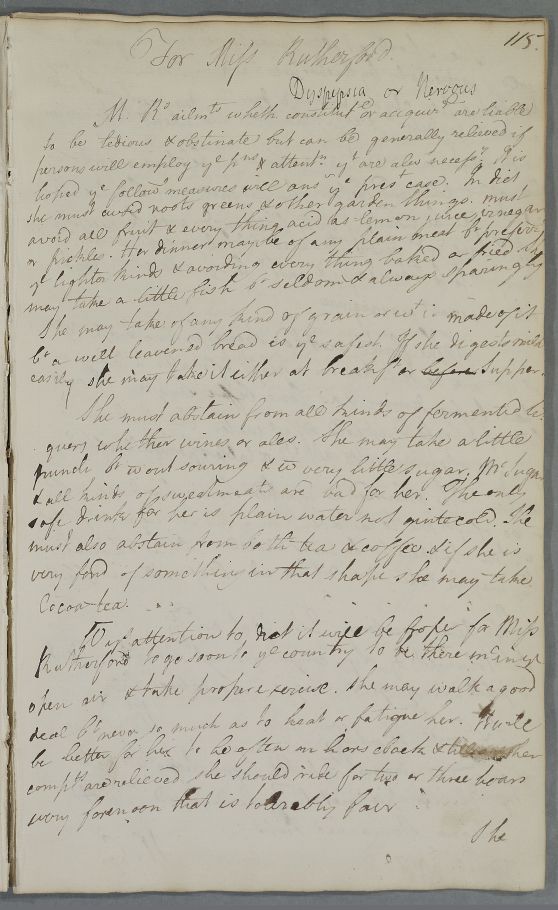 115.
For Miss Rutherford.
Dyspepsia or Nervous
M. Rs ailmts wheth. constitutl or acquird are liable
to be tedious & obstinate but can be generally relieved if
persons will employ ye pns & attentn yt are also necessy. It is
hoped ye followg measures will ansr ye prest case. In diet
she must avoid roots greens & other garden things. must
avoid all fruit & every thing acid as lemon juice, vinegar
or pickles. Her dinner may be of any plain meat bt prefer
ye lighter kinds & avoiding every thing baked or fried she
may take a little fish bt seldom & always sparingly
She may take of any kind of grain or wt is made of it
bt a well leavened bread is ye safest. If she digests milk
easily she may take it either at breakft or before Supper.
She must abstain from all kinds of fermented li-
quors whether wines or ales. She may take a little
punch bt wout souring & w very little sugar. for Sugar
& all kinds of sweetmeats are bad for her. The only
safe drink for her is plain water not quite cold. She
must also abstain from both tea & coffee & if she is
very fond of something in that shape she may take
Cocoa-tea.
Wt ys attention to diet it will be proper for Miss
Rutherford to go soon to ye country to be there much in ye
open air & take proper exercise. She may walk a good
deal bt never so much as to heat or fatigue her. It will
be better for her to be often on horseback & her
compts are relieved she should ride for two or three hours
every forenoon that is tolerably fair
She